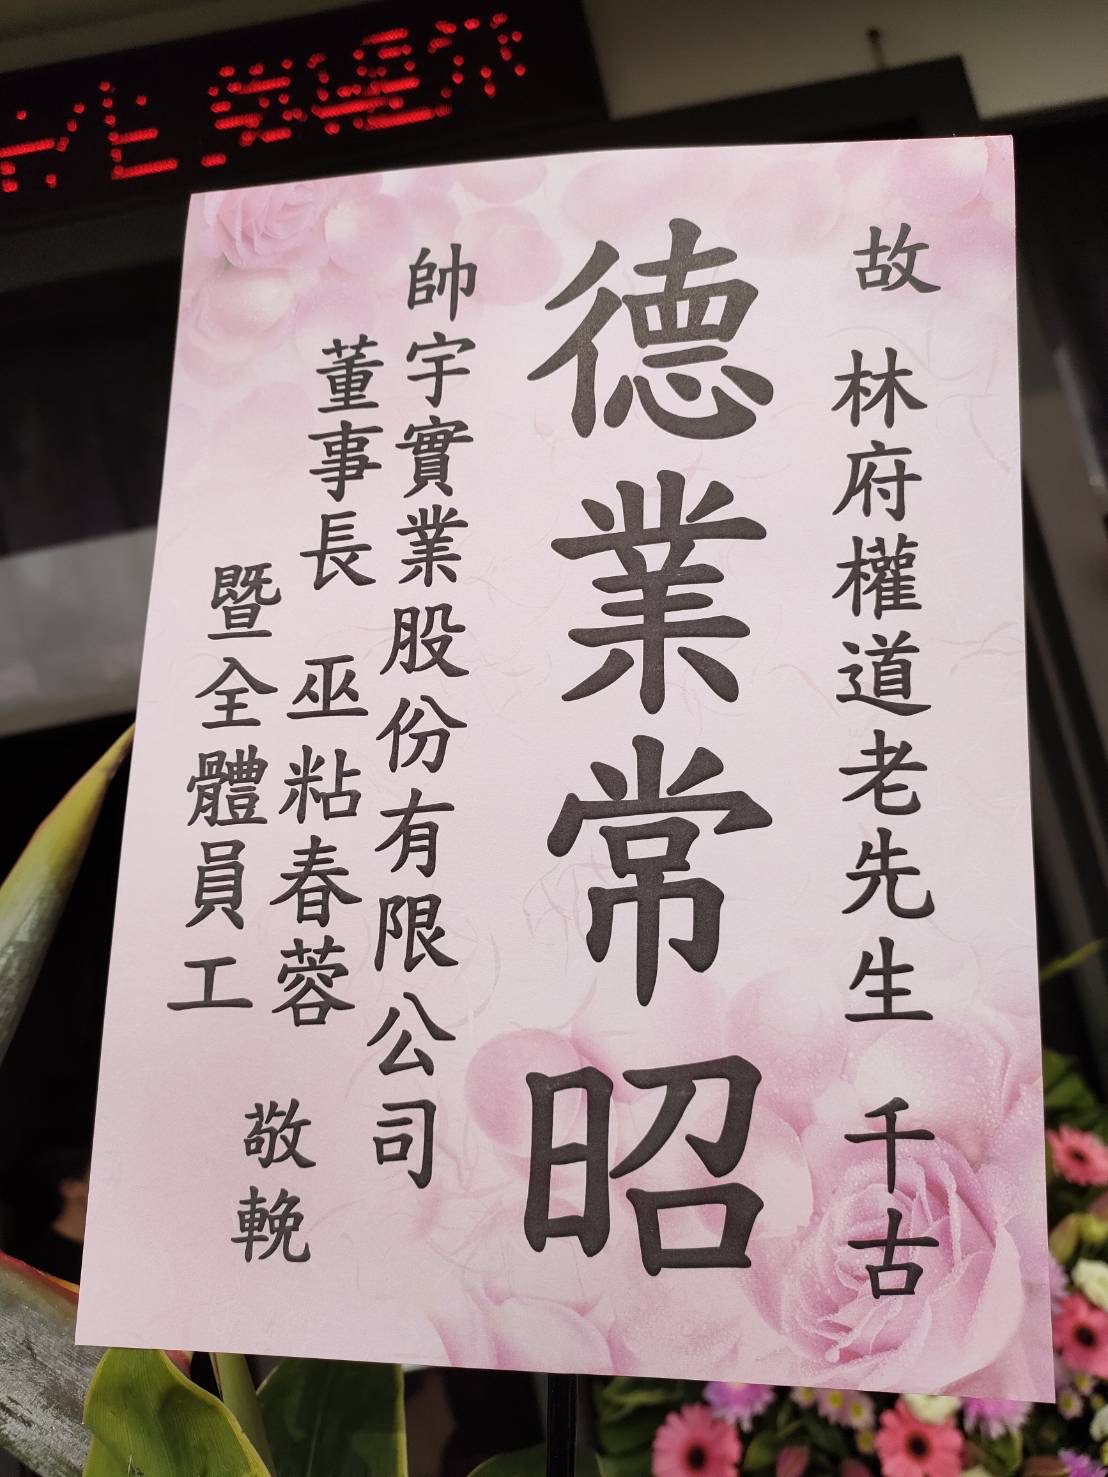 故 林府權道老先生 千古
德業常昭
帥宇實業股份有限公司
董事長 巫粘春蓉
暨全體員工
敬輓